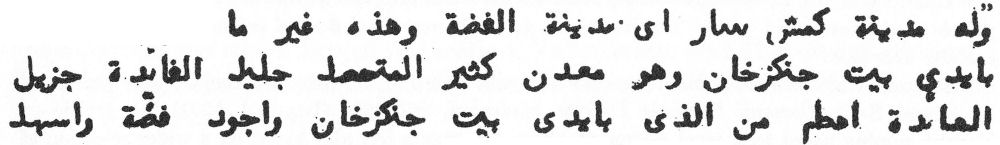 "وله مدينة كمش سار اى مدينة الفضة وهذه غير ما
بايدي بيت جنكزخان وهو معدن كثير المتحصل جليل الفائدة جزيل
العائدة اعظم من الذى بايدى بيت جنكزخان واجود فضّة واسهل